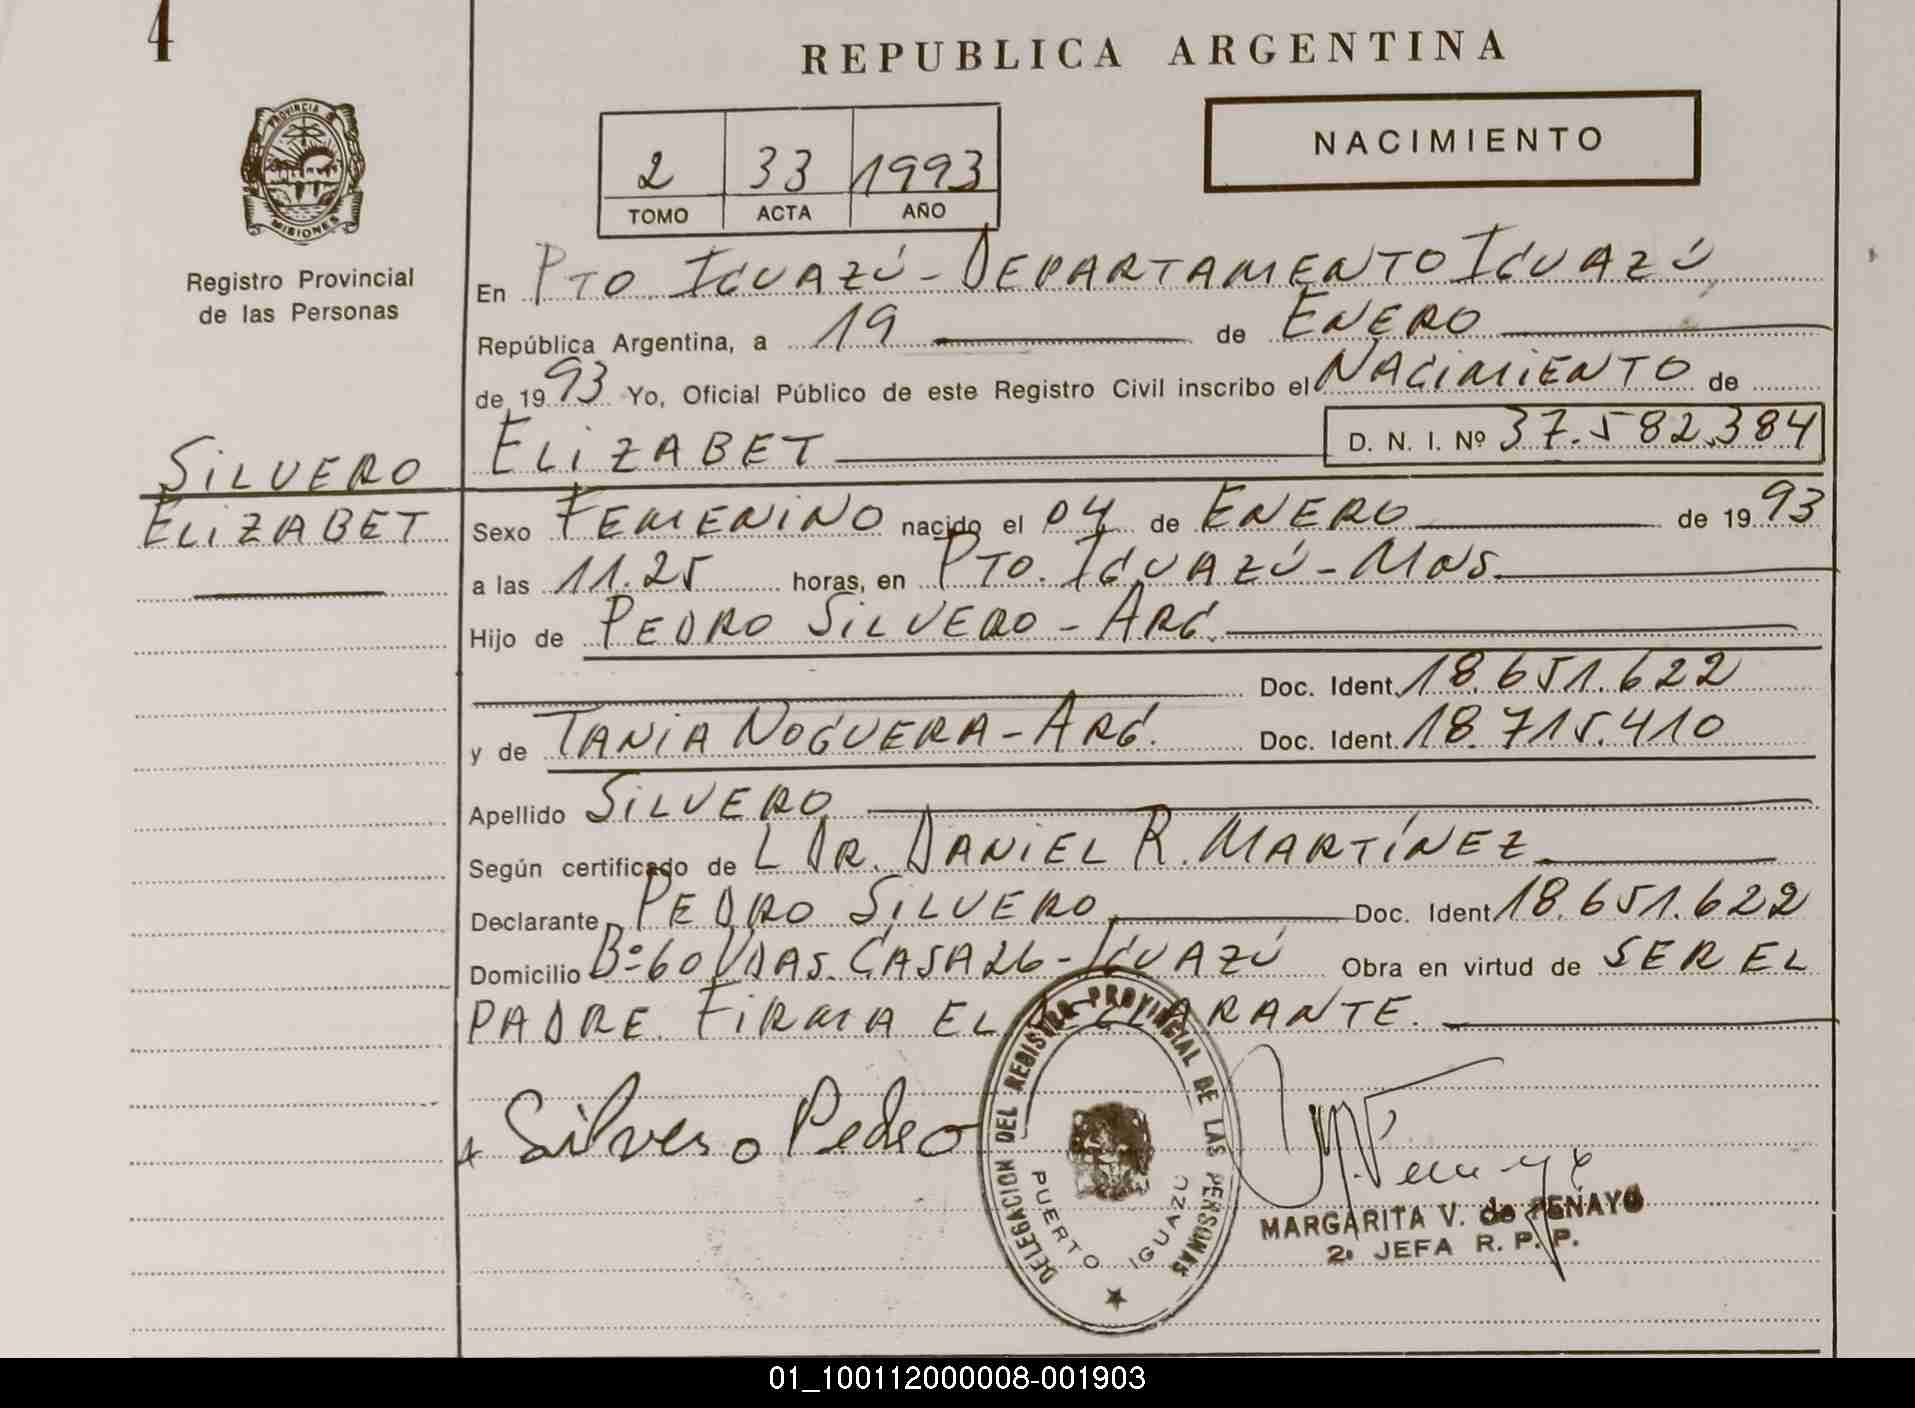 4
REPUBLICA ARGENTINA
PROVINCIA DE
MISIONES
Registro Provincial
de las Personas
2 33 1993
TOMO ACTA AÑO
NACIMIENTO
En PTO IGUAZÚ - DEPARTAMENTO IGUAZÚ
República Argentina, a 19 de ENERO
de 1993 Yo, Oficial Público de este Registro Civil inscribo el NACIMIENTO de
ELIZABET D. N. I. Nº 37.582.384
SILVERO
ELIZABET
Sexo FEMENINO nacido el 04 de ENERO de 1993
a las 11.25 horas, en PTO. IGUAZÚ - MNS.
Hijo de PEDRO SILVERO - ARG.
Doc. Ident. 18.651.622
y de TANIA NOGUERA - ARG. Doc. Ident. 18.715.410
Apellido SILVERO
Según certificado de L DR. DANIEL R. MARTÍNEZ
Declarante PEDRO SILVERO Doc. Ident. 18.651.622
Domicilio Bº 60 VDAS. CASA 26 - IGUAZÚ Obra en virtud de SER EL
PADRE. FIRMA EL DECLARANTE.
Silvero Pedro
DELEGACION DEL REGISTRO PROVINCIAL DE LAS PERSONAS
PUERTO IGUAZU
MARGARITA V. de PENAYO
2ª JEFA R. P. P.
01_100112000008-001903